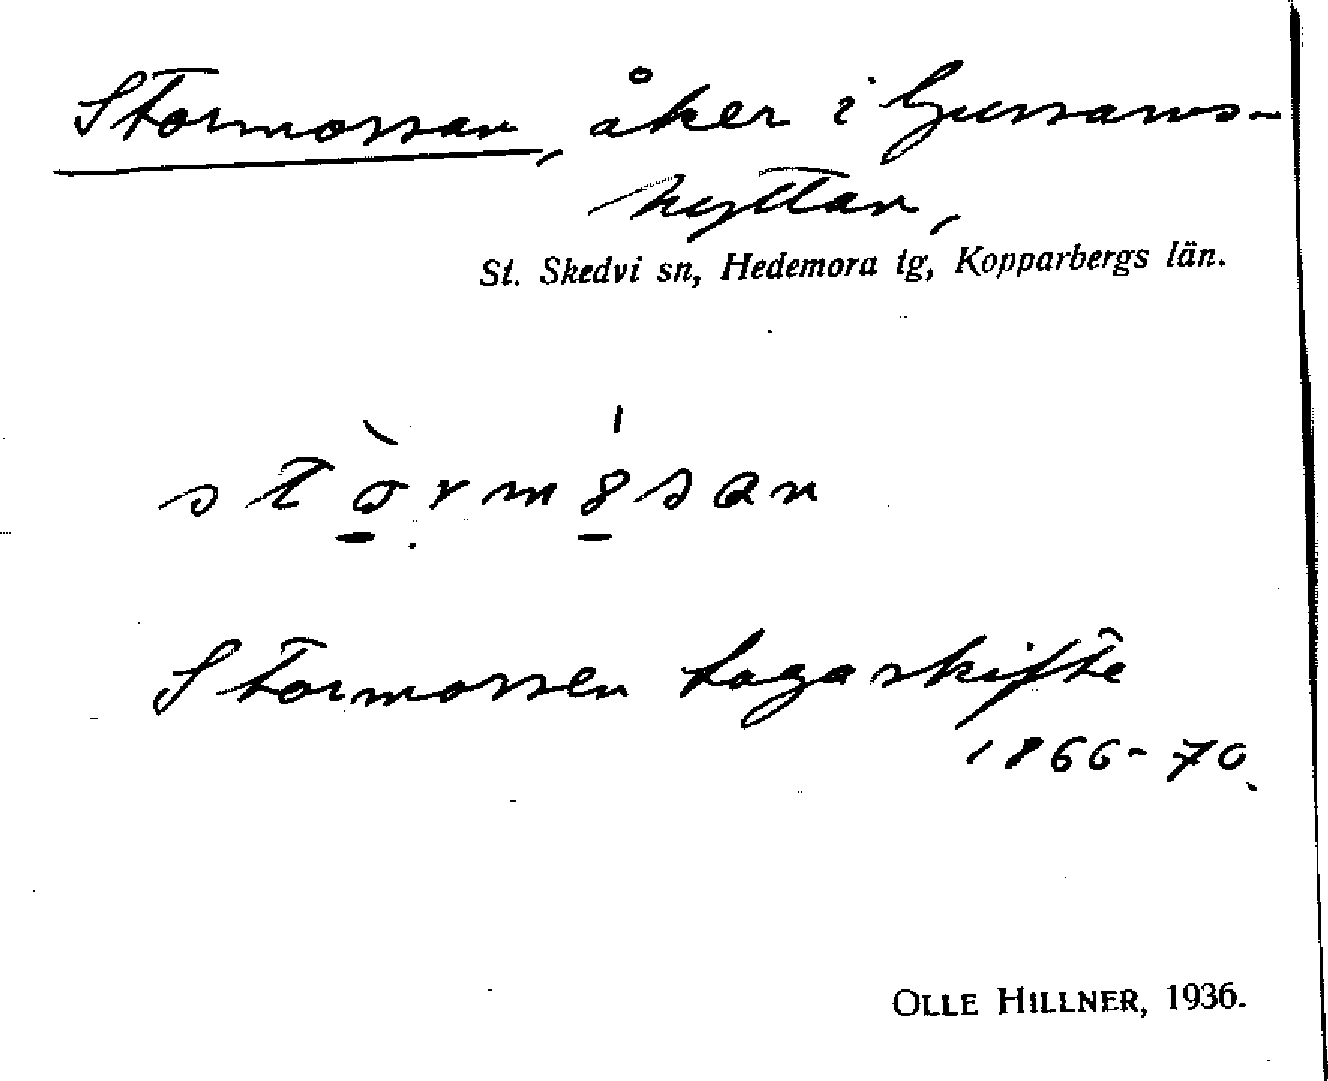 Stormossan, åker i Ljussarvs-
hyttan,
St. Skedvi sn, Hedemora tg, Kopparbergs län.
Stormossen laga skifte
1866-70.
OLLE HILLNER, 1936.